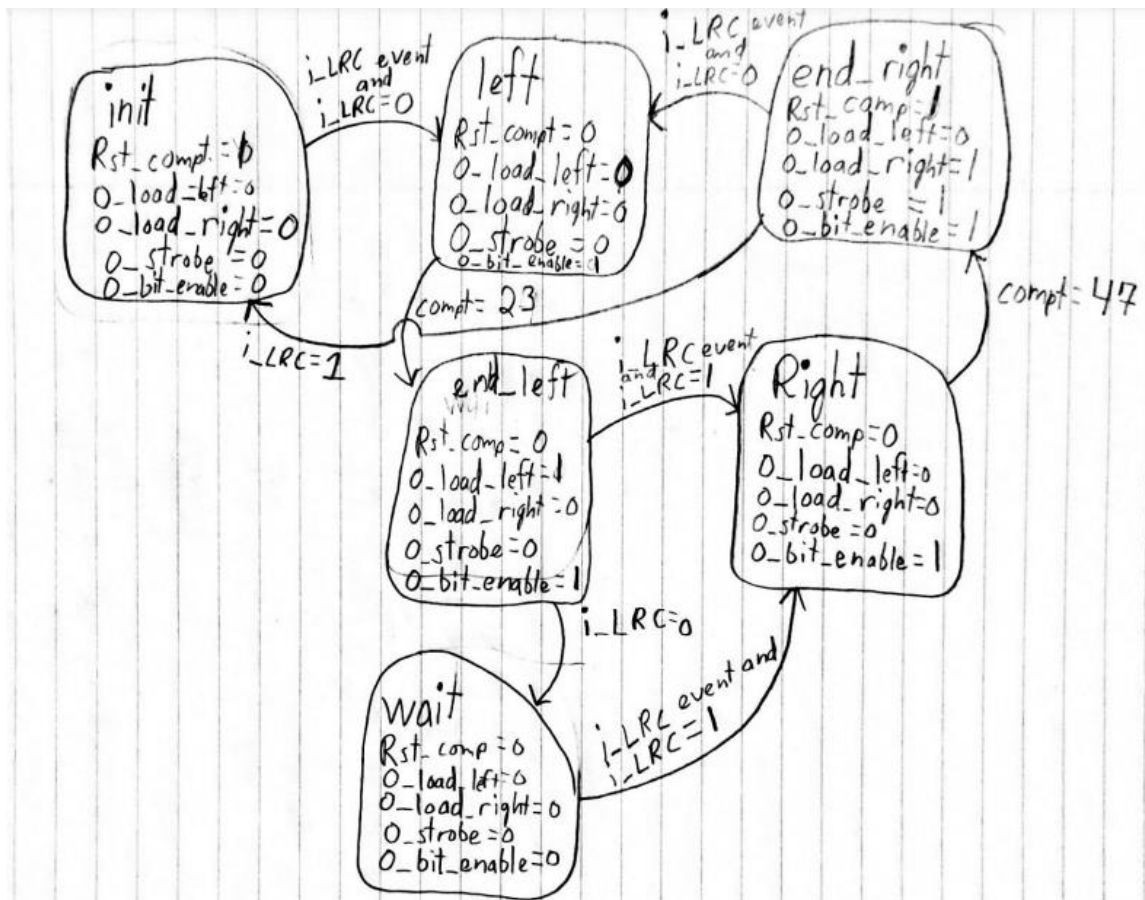 init
Rst_compt = 1
O_load_left=0
O_load_right=0
O_strobe=0
O_bit_enable=0
i_LRC event
and
i_LRC=0
left
Rst_compt=0
O_load_left=0
O_load_right=0
O_strobe=0
O_bit_enable=1
i_LRC event
and
i_LRC=0
end_right
Rst_comp=1
O_load_left=0
O_load_right=1
O_strobe=1
O_bit_enable=1
compt=23
i_LRC=1
compt=47
end_left
Rst_comp=0
O_load_left=1
O_load_right=0
O_strobe=0
O_bit_enable=1
i_LRC event
and
i_LRC=1
Right
Rst_comp=0
O_load_left=0
O_load_right=0
O_strobe=0
O_bit_enable=1
i_LRC=0
wait
Rst_comp=0
O_load_left=0
O_load_right=0
O_strobe=0
O_bit_enable=0
i_LRC event and
i_LRC=1